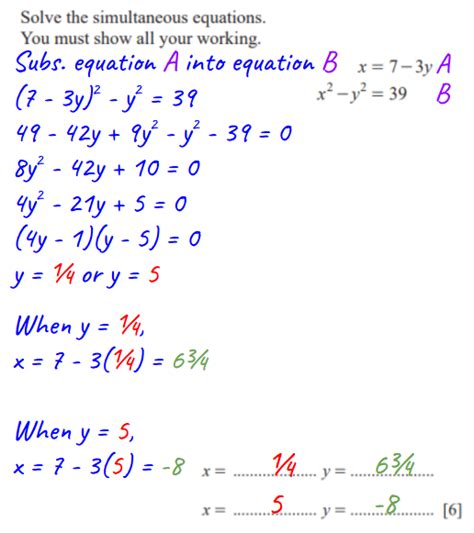 Solve the simultaneous equations.
You must show all your working.
Subs. equation A into equation B x = 7 – 3y A
(7 - 3y)² - y² = 39 x² – y² = 39 B
49 - 42y + 9y² - y² - 39 = 0
8y² - 42y + 10 = 0
4y² - 21y + 5 = 0
(4y - 1)(y - 5) = 0
y = 1/4 or y = 5
When y = 1/4,
x = 7 - 3(1/4) = 6 3/4
When y = 5,
x = 7 - 3(5) = -8 x = .......1/4....... y = .......6 3/4.......
x = .......5....... y = .......-8....... [6]